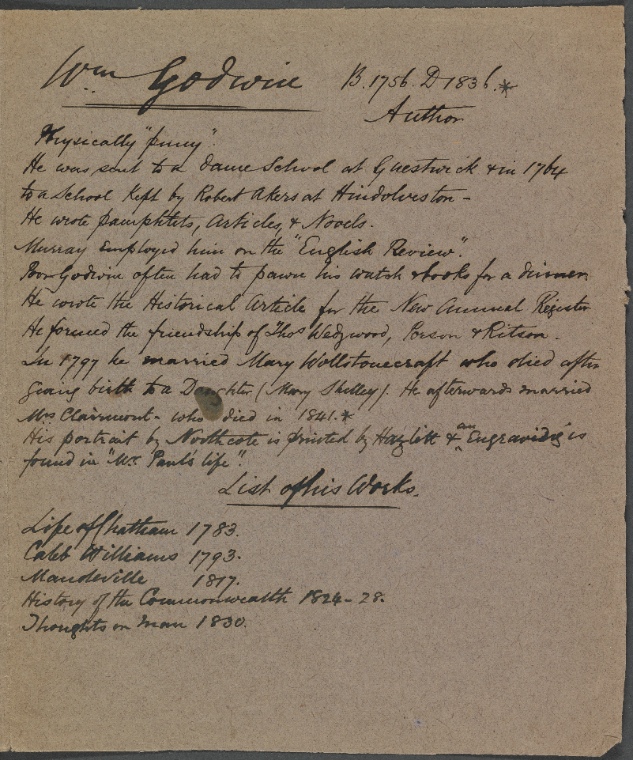 Wm Godwin B. 1756. D 1836.*
Author
Physically "puny".
He was sent to a Dame School at Guestwick & in 1764
to a School kept by Robert Akers at Hindolveston -
He wrote pamphlets, Articles, & Novels.
Murray Employed him on the "English Review".
Poor Godwin often had to pawn his watch & books for a dinner
He wrote the Historical Article for the New Annual Register
He formed the friendship of Thos Wedgwood, Porson & Ritson.
In 1797 he married Mary Wollstonecraft who died after
giving birth to a Daughter (Mary Shelley). He afterwards married
Mrs Clairmont - who died in 1841.*
His portrait by Northcote is printed by Hazlitt & an Engraving is
found in "Mr. Paul's life".
List of his Works.
Life of Chatham 1783.
Caleb Williams 1793.
Mandeville 1817.
History of the Commonwealth 1824-28.
Thoughts on man 1830.